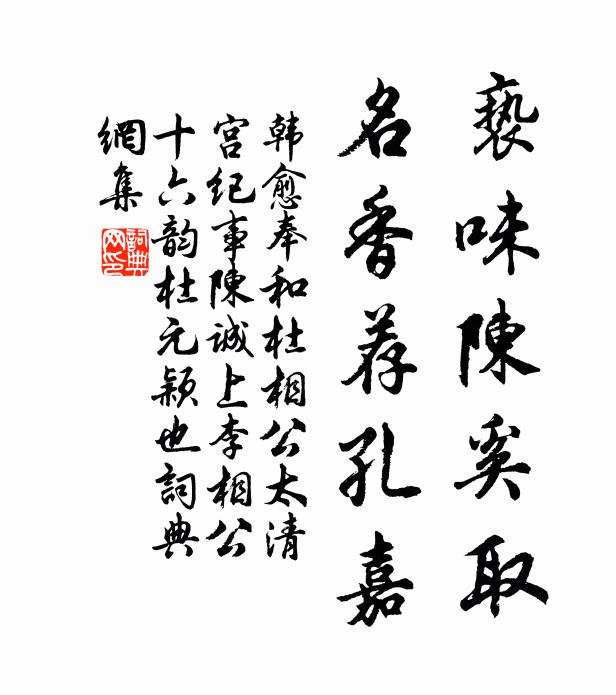 亵味陳奚取
名香荐孔嘉
韩愈奉和杜相公太清
宫纪事陳诚上李相公
十六韵杜元颖也詞典
網集
詞典
网印